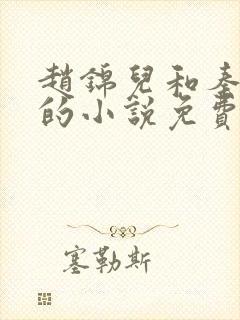 趙錦兒和秦
的小說免費
塞勒斯